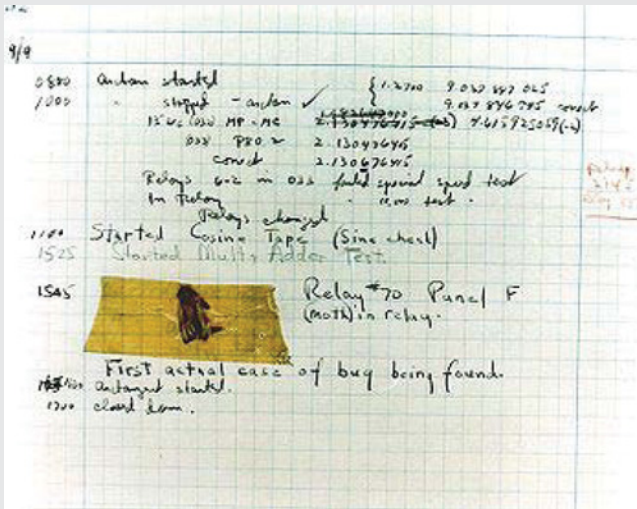 9/9
0800 Antan started
1000 " stopped - antan ✓ { 1.2700 9.037 847 025
9.037 846 795 correct
13"uc (032) MP - MC 2.130476415 (-3) 4.615925059(-2)
033 PRO 2 2.130476415
correct 2.130676415
Relays 6-2 in 033 failed special speed test
In Relay " test.
Relays changed
1100 Started Cosine Tape (Sine check)
1525 Started Mult+ Adder Test.
1545 Relay #70 Panel F
(moth) in relay.
First actual case of bug being found.
antangent started.
1700 closed down.